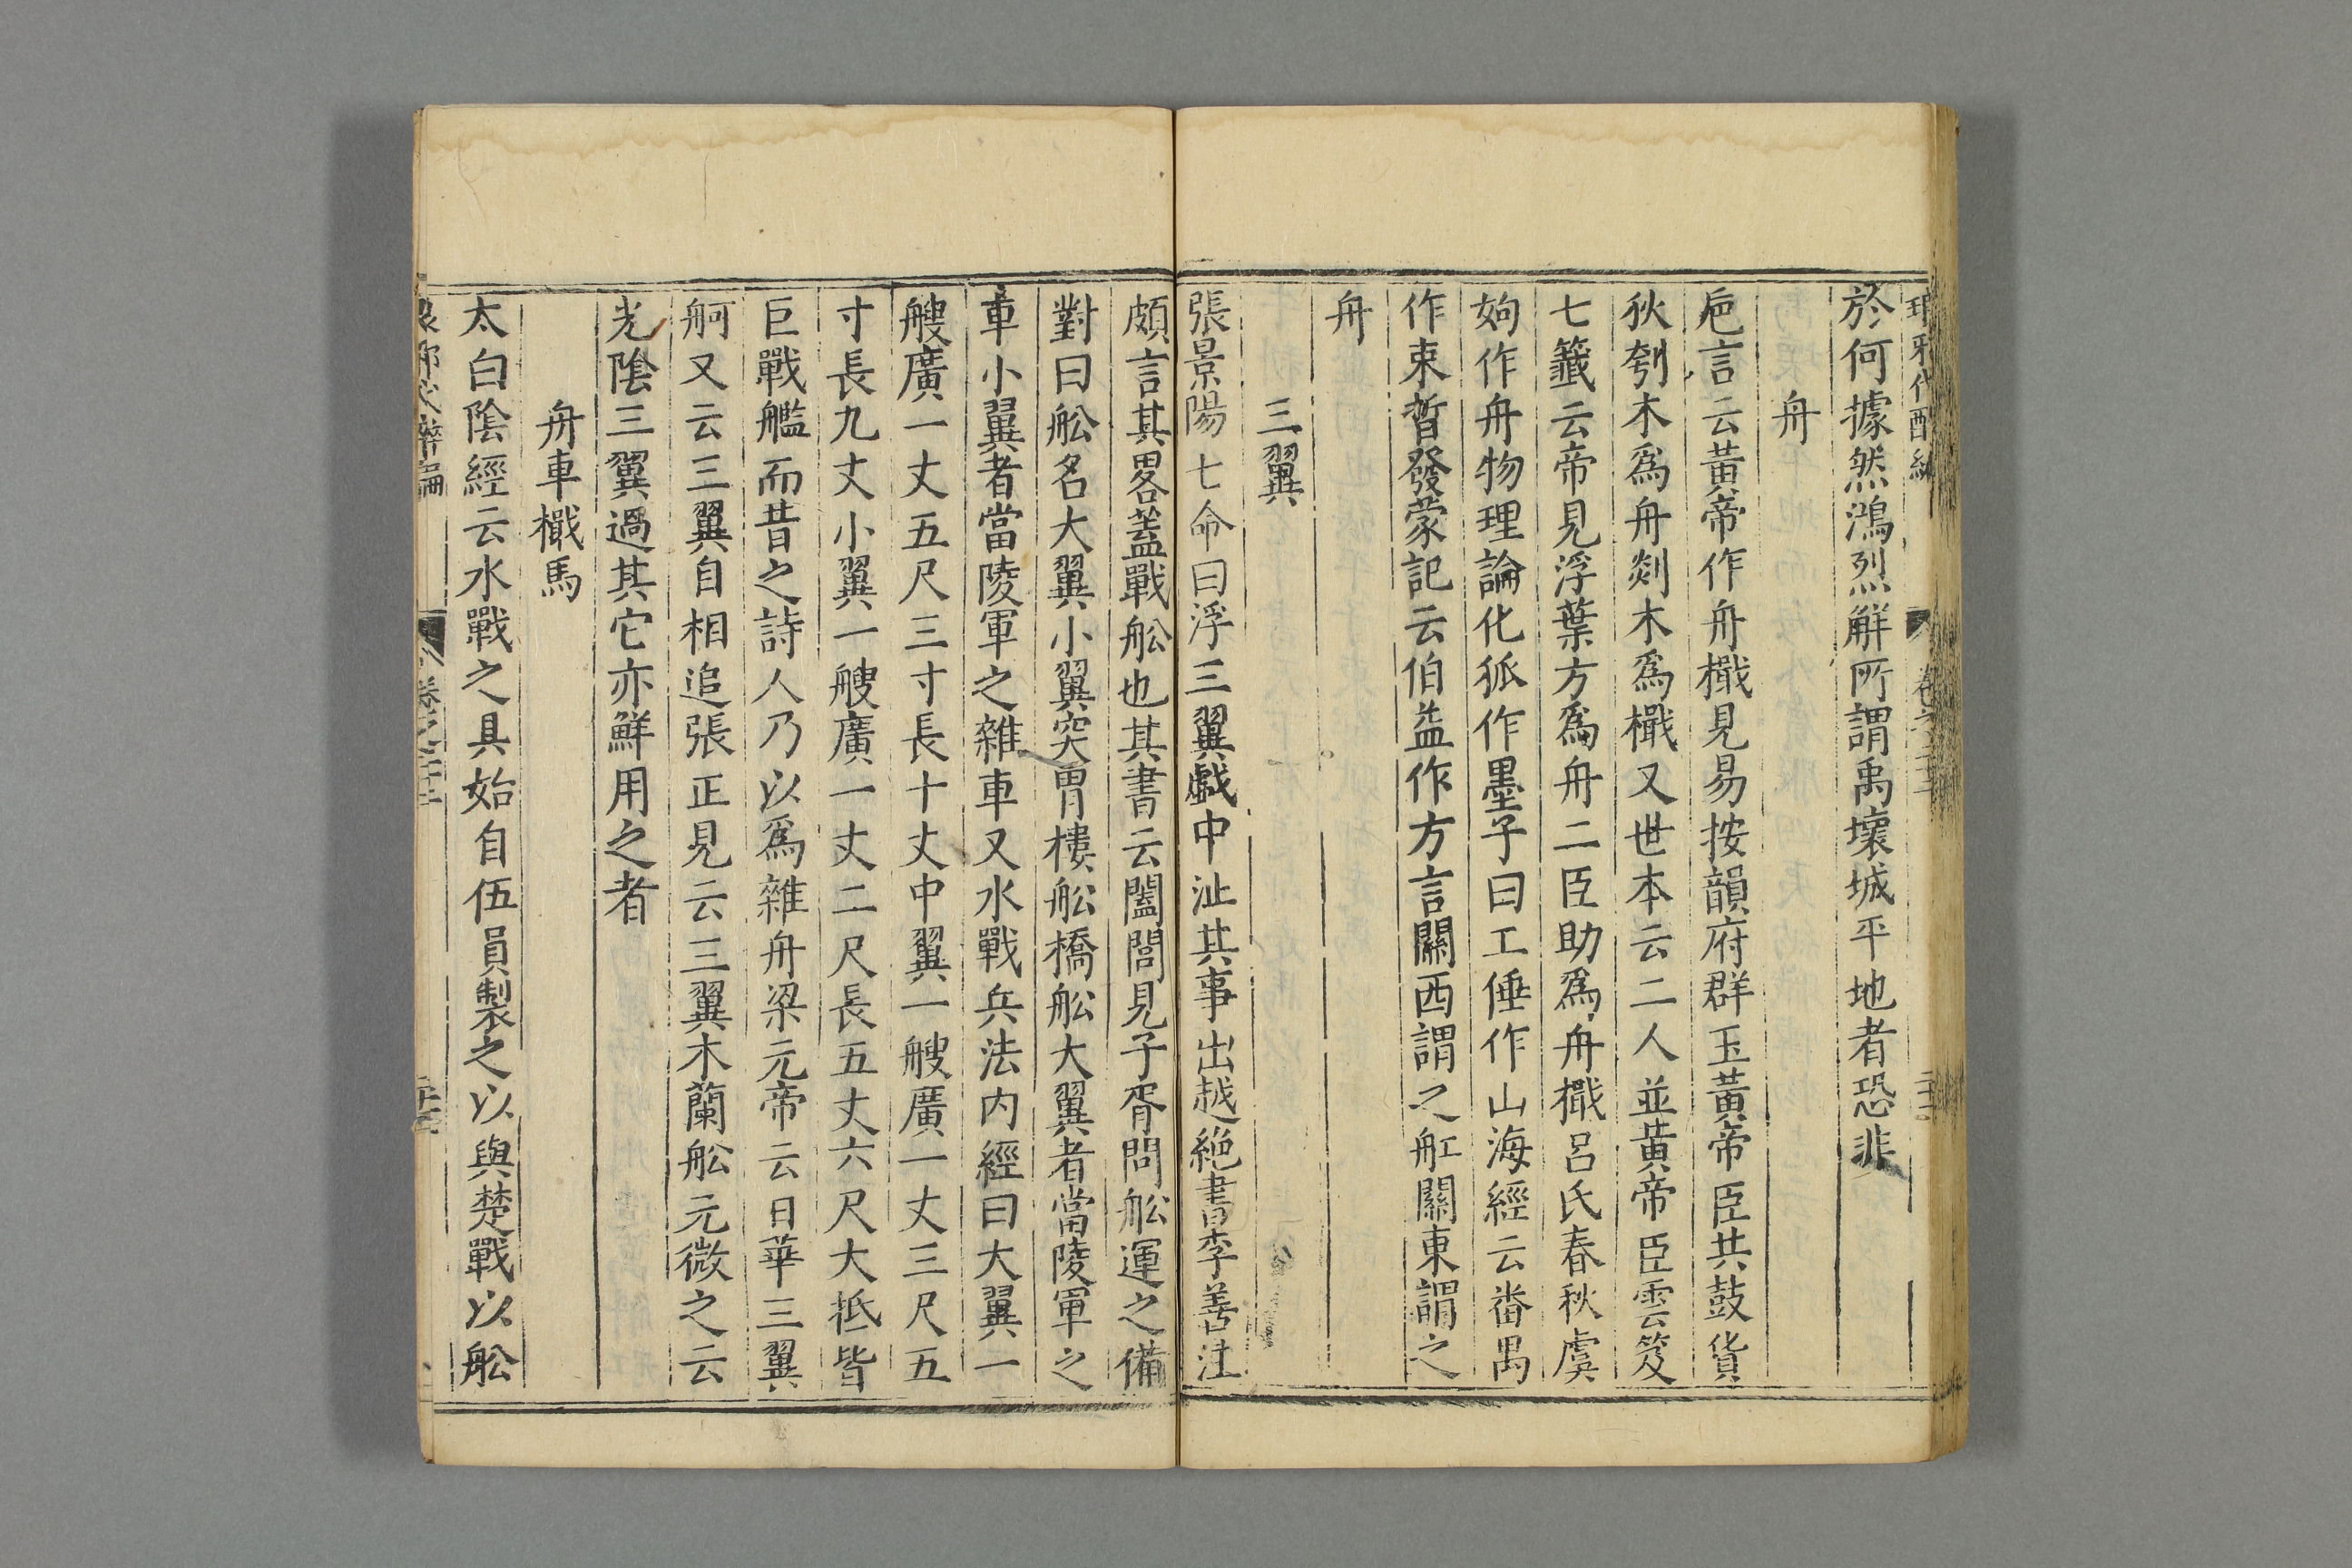 於何據然鴻烈解所謂禹壞城平地者恐非
舟
巵言云黃帝作舟檝見易按韻府群玉黃帝臣共鼓貨
狄刳木爲舟剡木爲檝又世本云二人並黃帝臣雲笈
七籤云帝見浮葉方爲舟二臣助爲舟檝呂氏春秋虞
姁作舟物理論化狐作墨子曰工倕作山海經云番禺
作束晳發蒙記云伯益作方言關西謂之舡關東謂之
舟
三翼
張景陽七命曰浮三翼戲中沚其事出越絶書李善注
頗言其畧蓋戰舩也其書云闔閭見子胥問舩運之備
對曰舩名大翼小翼突冒樓舩橋舩大翼者當陵軍之
車小翼者當陵軍之雜車又水戰兵法内經曰大翼一
艘廣一丈五尺三寸長十丈中翼一艘廣一丈三尺五
寸長九丈小翼一艘廣一丈二尺長五丈六尺大抵皆
巨戰艦而昔之詩人乃以爲雜舟梁元帝云日華三翼
舸又云三翼自相追張正見云三翼木蘭舩元微之云
光陰三翼過其它亦鮮用之者
舟車檝馬
太白陰經云水戰之具始自伍員製之以與楚戰以舩